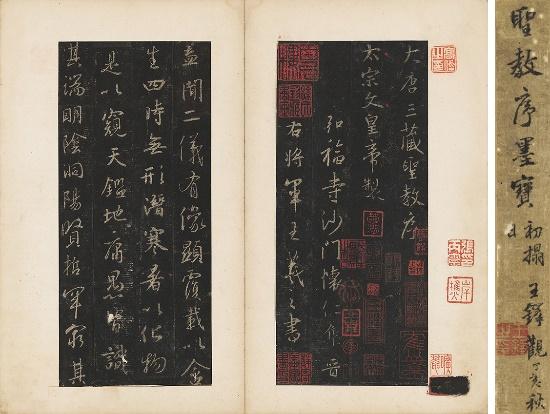 聖教序墨寶
初搨
王鐸觀 丁亥秋
大唐三藏聖教序
太宗文皇帝製
弘福寺沙門懷仁集晉
右將軍王羲之書
蓋聞二儀有像顯覆載以含
生四時無形潛寒暑以化物
是以窺天鑑地庸愚皆識
其端明陰洞陽賢哲罕窮其